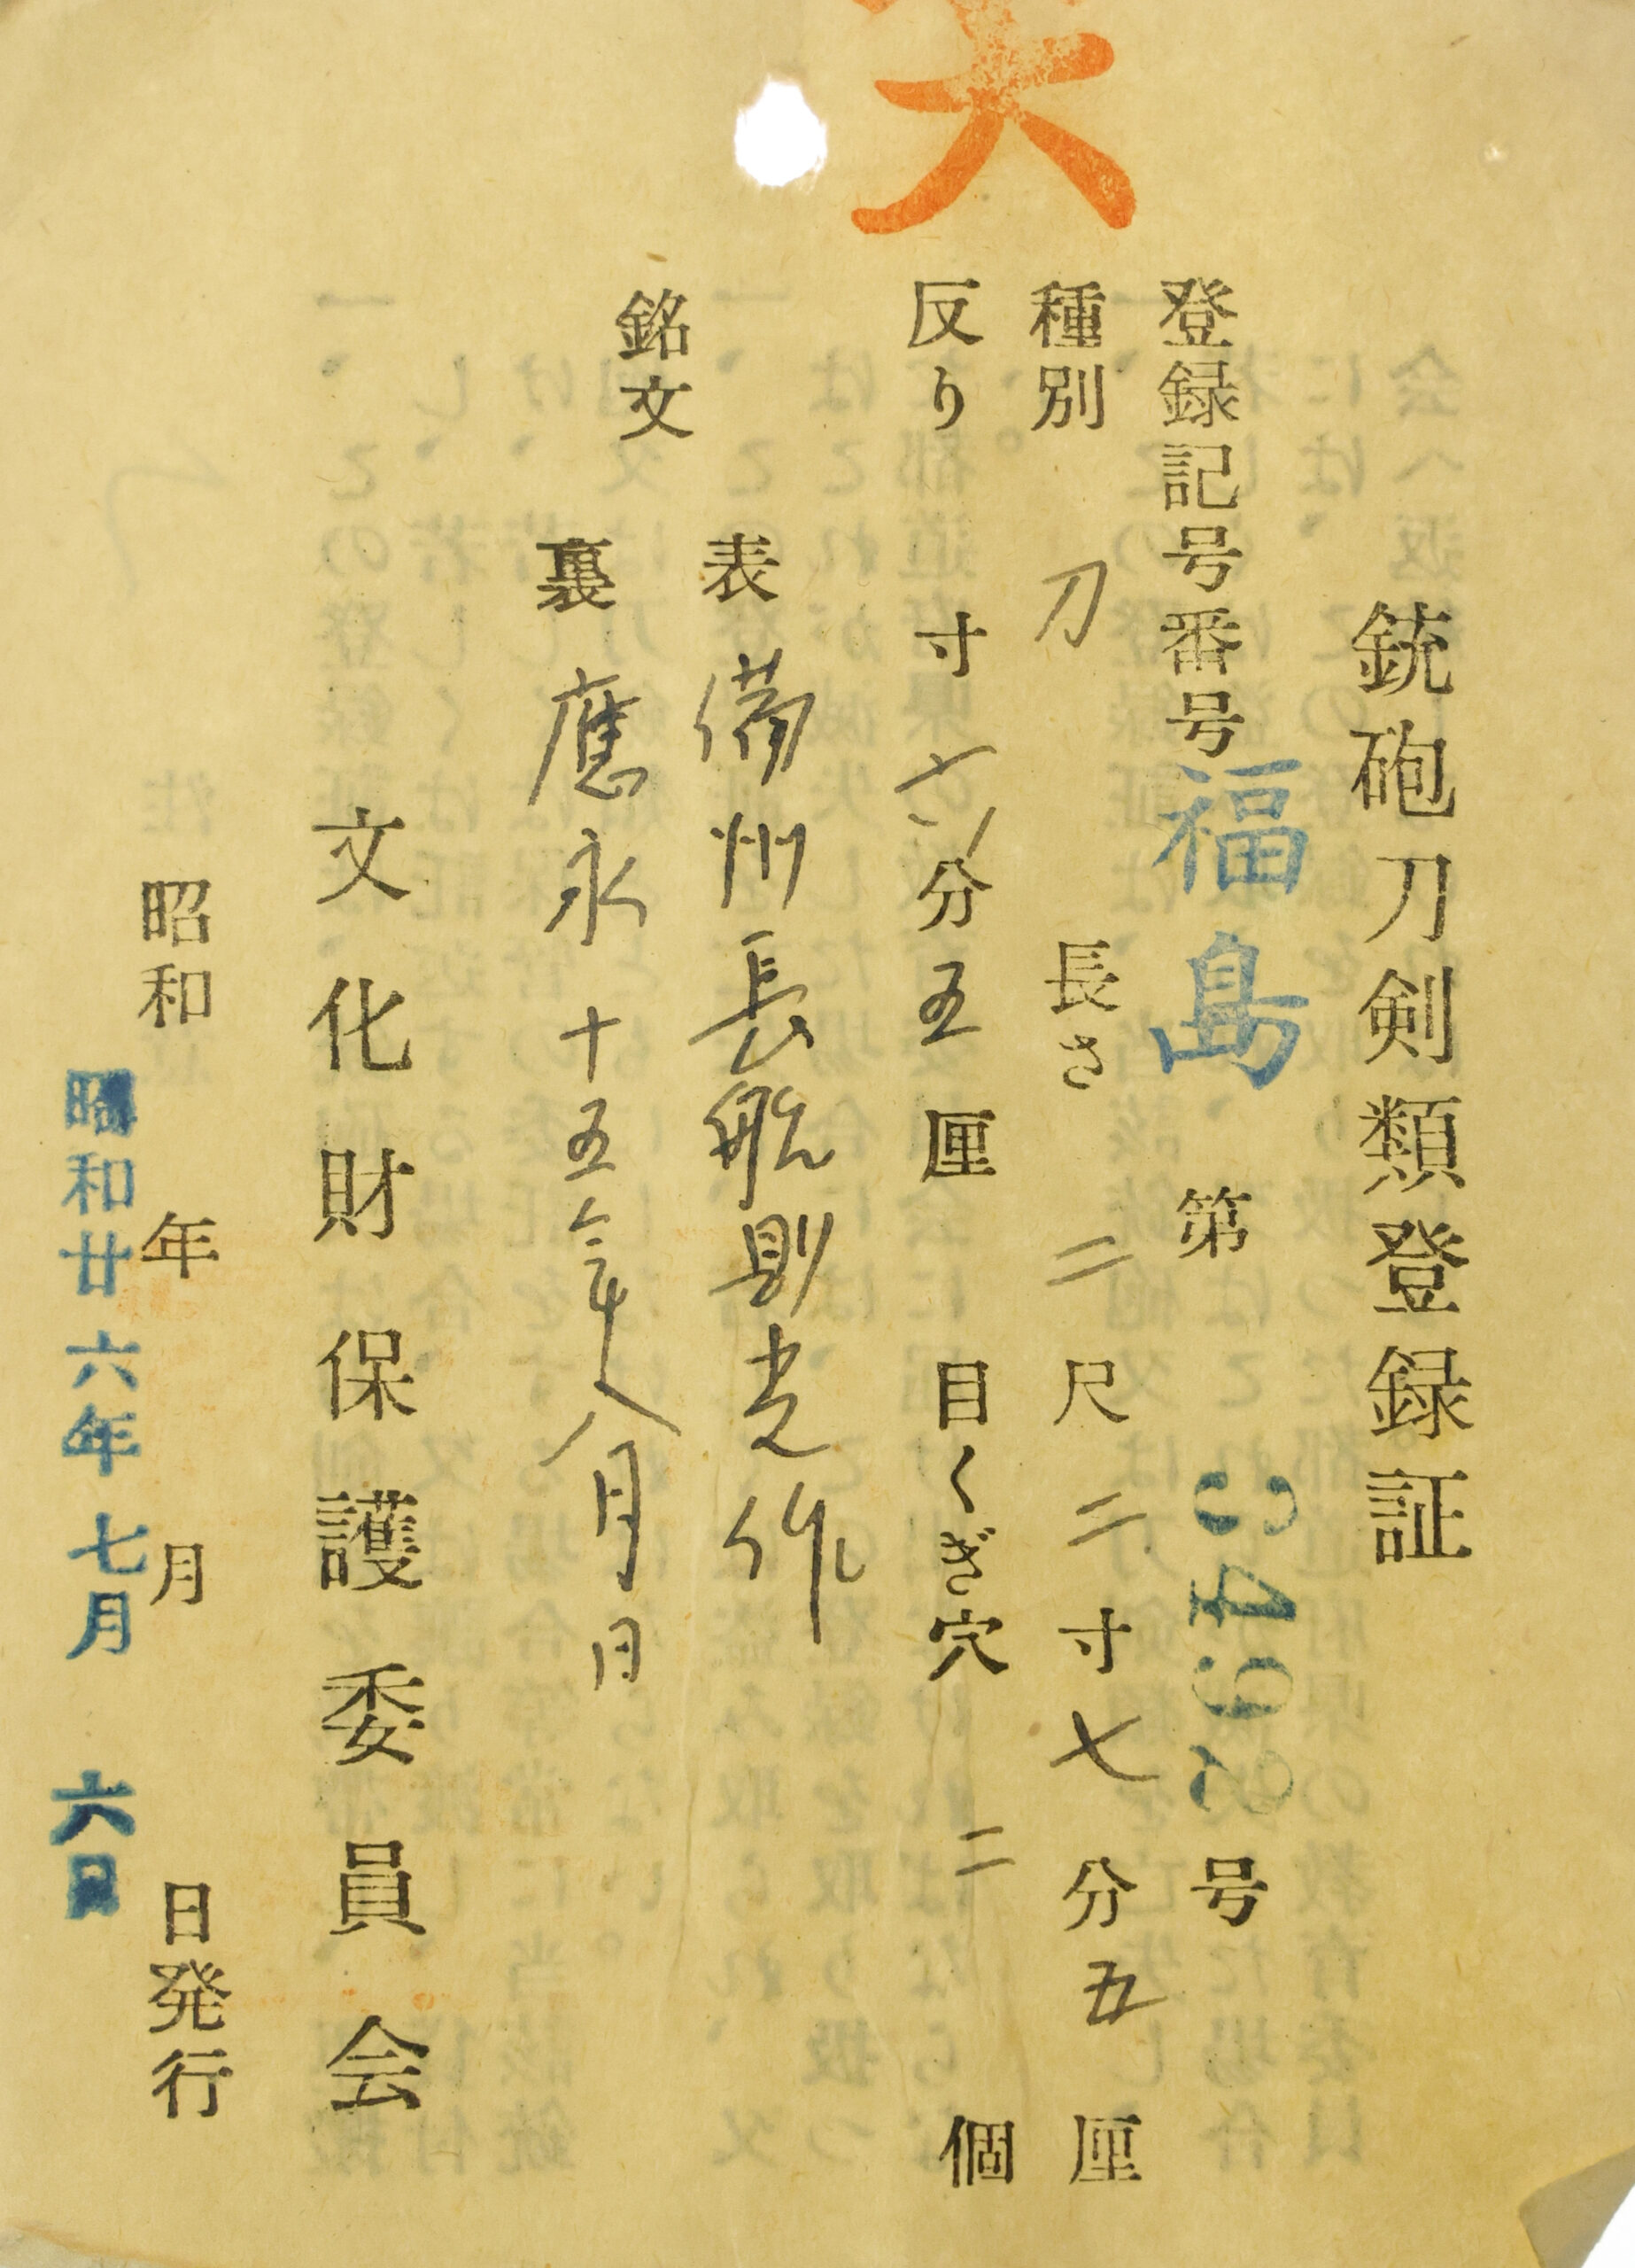 銃砲刀剣類登録証
登録記号番号 福島 第 号
種別 刀 長さ 二尺二寸七分五厘
反り 寸六分五厘 目くぎ穴 二 個
銘文
表 備州長船則光作
裏 應永十五年八月日
文化財保護委員会
昭和 年 月 日発行
昭和廿六年七月六日